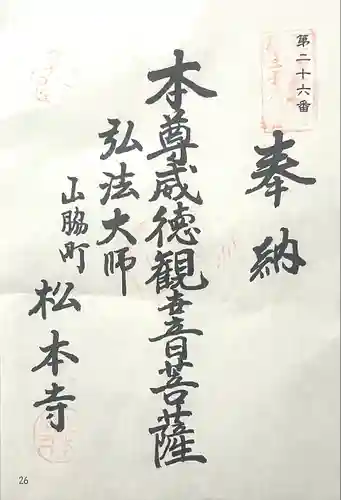 第二十六番
奉納
本尊威徳観喜音菩薩
弘法大師
山脇町
松本寺
26